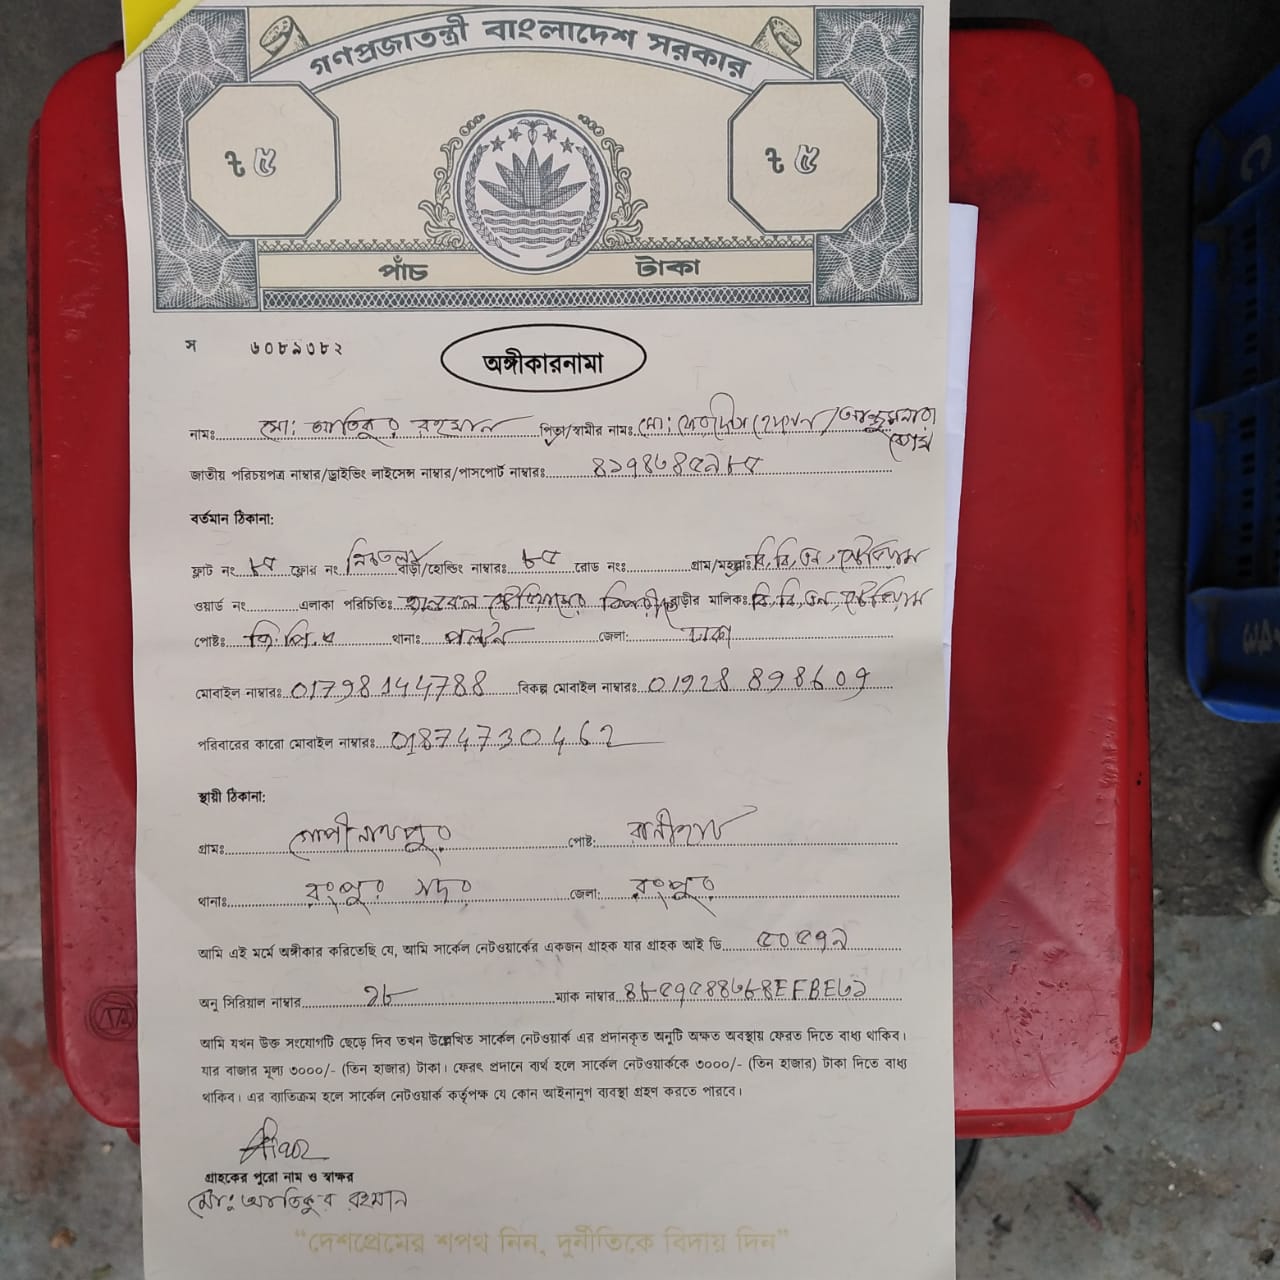 গণপ্রজাতন্ত্রী বাংলাদেশ সরকার
৳ ৫ ৳ ৫
পাঁচ টাকা
স ৬০৮৯৩৮২
অঙ্গীকারনামা
নামঃ মো: আতিকুর রহমান পিতা/স্বামীর নামঃ মো:
জাতীয় পরিচয়পত্র নাম্বার/ড্রাইভিং লাইসেন্স নাম্বার/পাসপোর্ট নাম্বারঃ
বর্তমান ঠিকানা:
ফ্লাট নং ৮৫ ফ্লোর নং নিচতলা বাড়ী/হোল্ডিং নাম্বারঃ ৮৫ রোড নংঃ গ্রাম/মহল্লাঃ
ওয়ার্ড নং এলাকা পরিচিতিঃ বাড়ীর মালিকঃ
পোষ্টঃ জি.পি.ও থানাঃ পল্টন জেলা: ঢাকা
মোবাইল নাম্বারঃ 01798144788 বিকল্প মোবাইল নাম্বারঃ 01928 898609
পরিবারের কারো মোবাইল নাম্বারঃ 01874730462
স্থায়ী ঠিকানা:
গ্রামঃ গোপীনাথপুর পোষ্ট:
থানাঃ রংপুর সদর জেলা: রংপুর
আমি এই মর্মে অঙ্গীকার করিতেছি যে, আমি সার্কেল নেটওয়ার্কের একজন গ্রাহক যার গ্রাহক আই ডি ৫০৫৭৯
অনু সিরিয়াল নাম্বার ম্যাক নাম্বার
আমি যখন উক্ত সংযোগটি ছেড়ে দিব তখন উল্লেখিত সার্কেল নেটওয়ার্ক এর প্রদানকৃত অনুটি অক্ষত অবস্থায় ফেরত দিতে বাধ্য থাকিব।
যার বাজার মূল্য ৩০০০/- (তিন হাজার) টাকা। ফেরৎ প্রদানে ব্যর্থ হলে সার্কেল নেটওয়ার্ককে ৩০০০/- (তিন হাজার) টাকা দিতে বাধ্য
থাকিব। এর ব্যতিক্রম হলে সার্কেল নেটওয়ার্ক কর্তৃপক্ষ যে কোন আইনানুগ ব্যবস্থা গ্রহণ করতে পারবে।
গ্রাহকের পুরো নাম ও স্বাক্ষর
মো: আতিকুর রহমান
"দেশপ্রেমের শপথ নিন, দুর্নীতিকে বিদায় দিন"